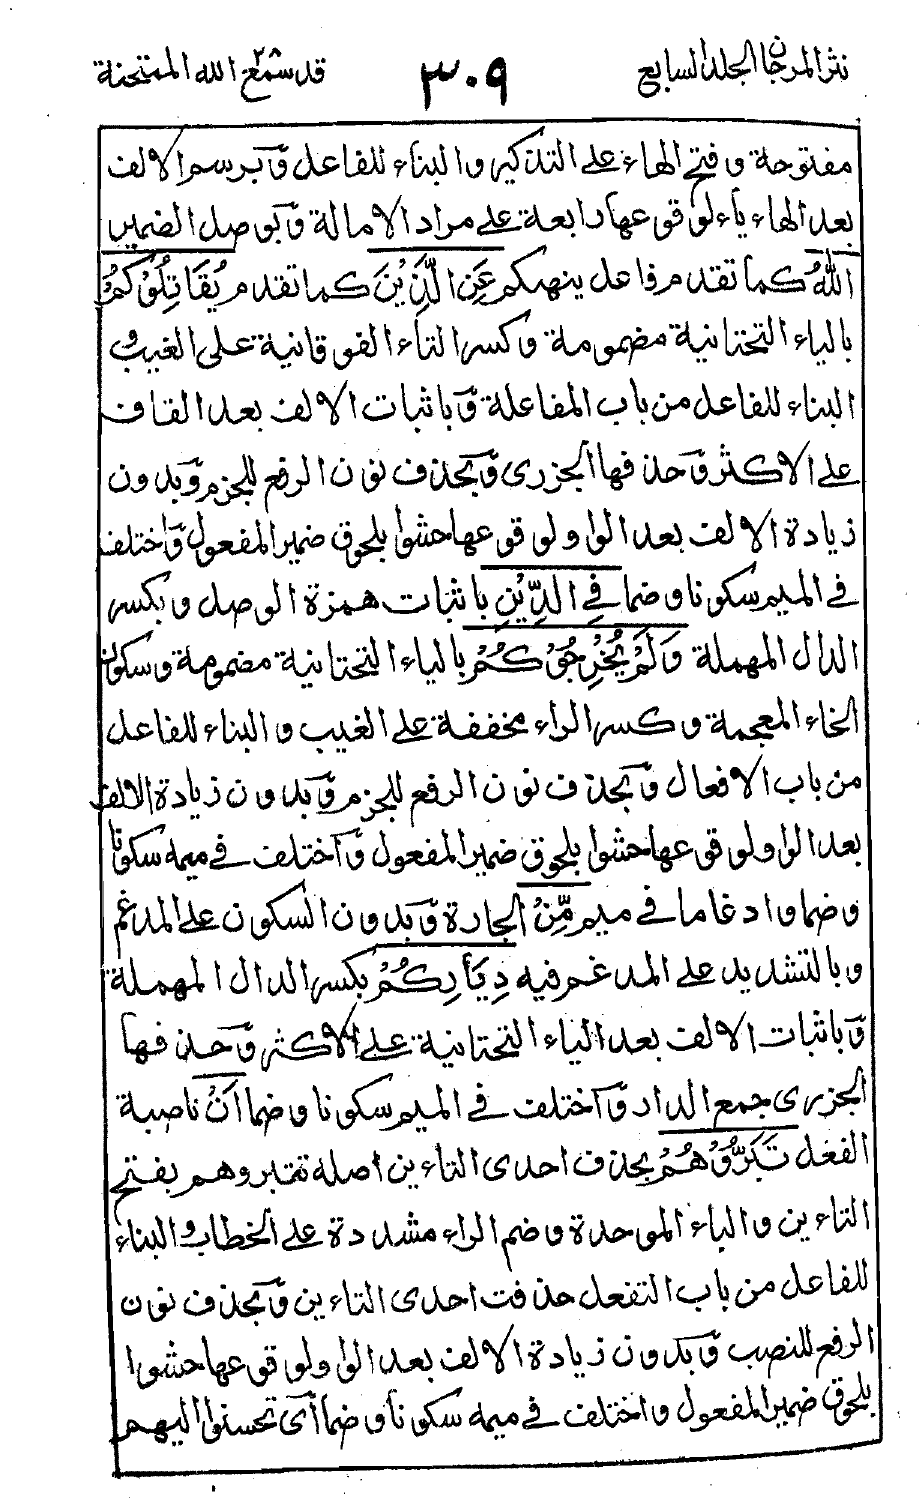 نثر المرجان الجلد السابع
٣٠٩
قد سمع ٢٨ الله الممتحنة
مفتوحة و فتح الهاء على التذكير والبناء للفاعل وَبرسم الالف
بعد الهاء ياء لوقوعها رابعة على مراد الامالة وَبوصل الضمير
اللّٰهُ كما تقدم فاعل ينهىكم عَنِ الَّذِيْنَ كما تقدم يُقَاتِلُوْكُمْ
بالياء التحتانية مضمومة وكسر التاء الفوقانية على الغيب و
البناء للفاعل من باب المفاعلة وَباثبات الالف بعد القاف
على الاكثر وَحذفها الجزرى وَبحذف نون الرفع للجزم وَبدون
زيادة الالف بعد الواو لوقوعها حشوا بلحوق ضمير المفعول وَاختلف
في الميم سكونا وضما فِي الدِّيْنِ باثبات همزة الوصل وبكسر
الدال المهملة وَلَمْ يُخْرِجُوْكُمْ بالياء التحتانية مضمومة وسكون
الخاء المعجمة وكسر الراء مخففة على الغيب والبناء للفاعل
من باب الافعال وَبحذف نون الرفع للجزم وَبدون زيادة الالف
بعد الواو لوقوعها حشوا بلحوق ضمير المفعول وَاختلف في ميمه سكونا
وضما وادغاما في ميم مِّنْ الجارة وَبدون السكون على المدغم
وبالتشديد على المدغم فيه دِيَارِكُمْ بكسر الدال المهملة
وَباثبات الالف بعد الياء التحتانية على الاكثر وَحذفها
الجزرى جمع الدار وَاختلف في الميم سكونا وضما اَنْ ناصبة
الفعل تَبَرُّوْهُمْ بحذف احدى التاءين اصله تتبروهم بفتح
التاءين والباء الموحدة وضم الراء مشددة على الخطاب والبناء
للفاعل من باب التفعل حذفت احدى التاءين وَبحذف نون
الرفع للنصب وَبدون زيادة الالف بعد الواو لوقوعها حشوا
بلحوق ضمير المفعول واختلف في ميمه سكونا وضما اى تحسنوا اليهم